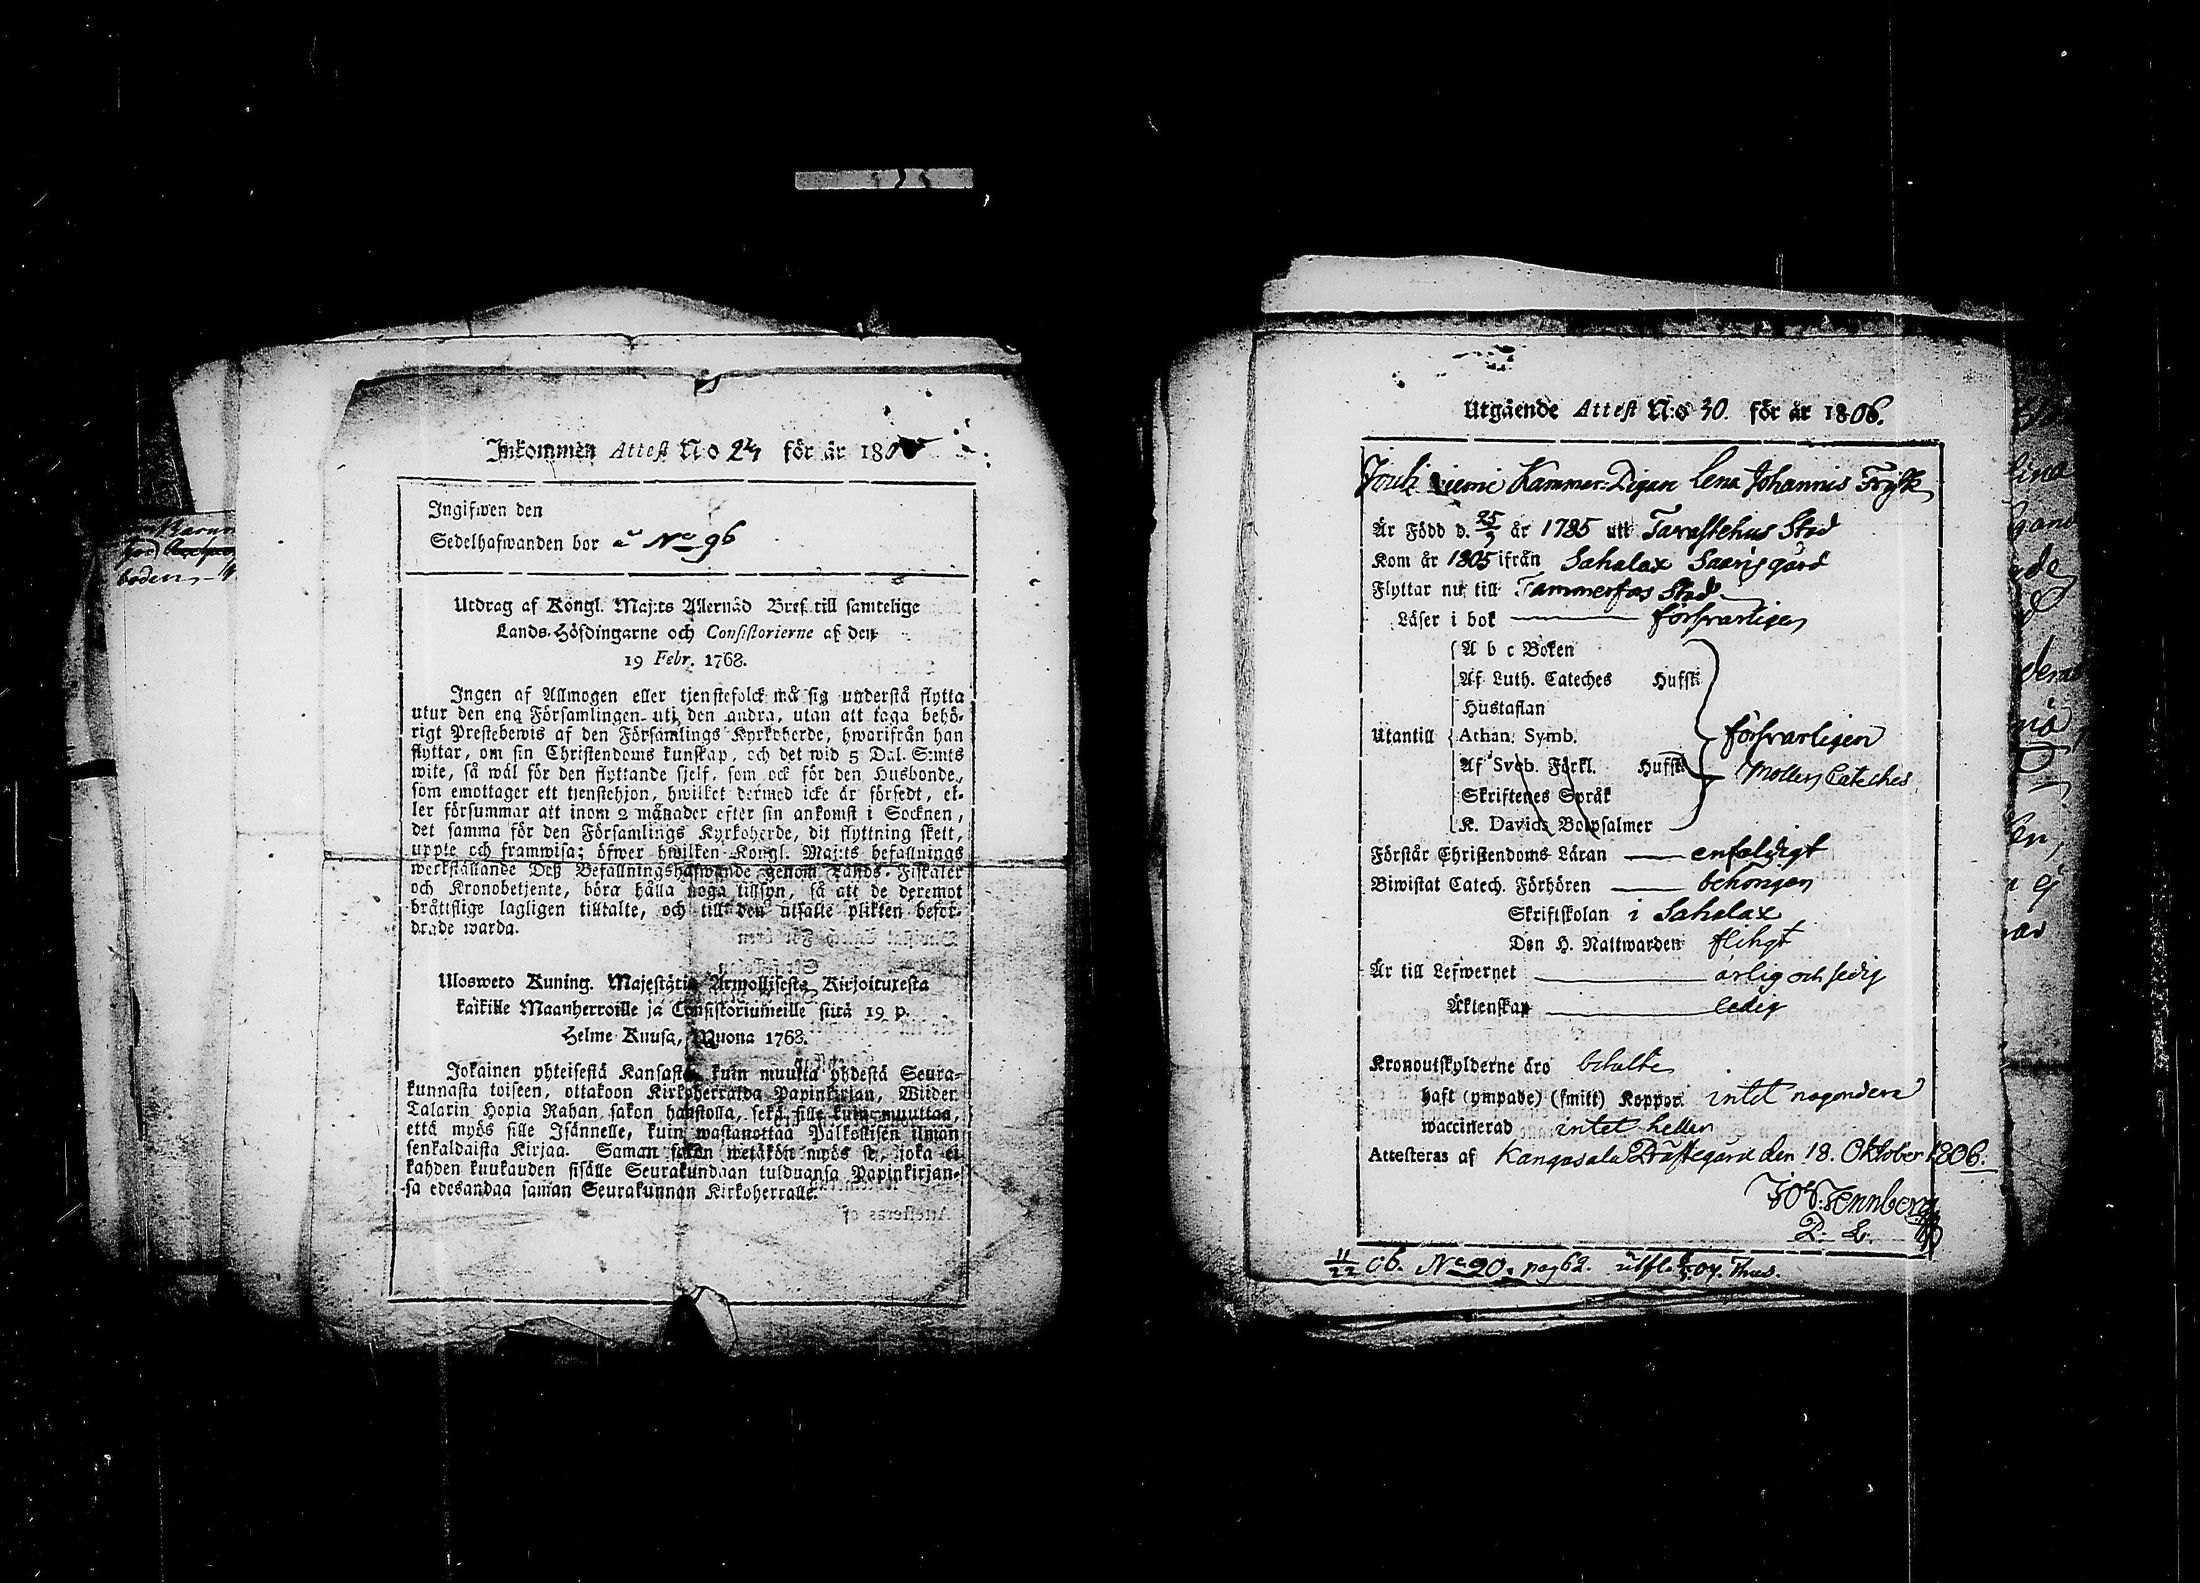 Inkommen Attest No 24 för år 180
Ingifwen den
Sedelhafwanden bor å No 96
Utdrag af Kongl. Maj:ts Allernåd Bref till samtelige
Lands-Höfdingarne och Consistorierne af den
19 Febr. 1768.
Ingen af Allmogen eller tjenstefolck må sig understå flytta
utur den ena Församlingen uti den andra, utan att taga behö-
rigt Prestebewis af den Församlings Kyrkoherde, hwarifrån han
flyttar, om sin Christendoms kunskap, och det wid 5 Dal. S:mts
wite, så wäl för den flyttande sjelf, som ock för den Husbonde,
som emottager ett tjenstehjon, hwilket dermed icke är försedt, el-
ler försummar att inom 2 månader efter sin ankomst i Socknen,
det samma för den Församlings Kyrkoherde, dit flyttning skett,
uppte och framwisa; öfwer hwilken Kongl. Maj:ts befallnings
werkställande Deß Befallningshafwande genom Lands-Fiskaler
och Kronobetjente, böra hålla noga tillsyn, så att de deremot
bråttslige lagligen tilltalte, och till den utsatte plikten befor-
drade warda.
Ulosweto Kuning. Majestätin Armollisesta Kirjoituxesta
kaikille Maanherroille ja Consistoriumeille siitä 19 p.
Helme Kuusa, Wuona 1768.
Jokainen yhteisestä Kansasta, kuin muutta yhdestä Seura-
kunnasta toiseen, ottakoon Kirkoherralda Papinkirjan, Wiiden
Talarin Hopia Rahan sakon haastolla, sekä sille kuin muuttaa,
että myös sille Isännelle, kuin wastanottaa Palkollisen ilman
senkaldaista Kirjaa. Saman sakon wetäköön myös se, joka ei
kahden kuukauden sisälle Seurakundaan tulduansa Papinkirjan-
sa edesandaa saman Seurakunnan Kirkoherralle.
Utgående Attest N:o 30. för år 1806.
Kammar-Pigan Lena Johannis Frisk
Är Född d. 25/9 år 1785 utt Tavastehus Stad
Kom år 1805 ifrån Sahalax Saarisgård
Flyttar nu till Tammerfors Stad
Läser i bok försvarligen
A b c Boken
Af Luth. Cateches Hufst:
Hustaflan
Utantill Athan. Symb. försvarligen
Af Sveb. Förkl. Hufst: Mollers Cateches
Skriftenes Språk
K. Davids Botpsalmer
Förstår Christendoms Läran enfaldigt
Biwistat Catech. Förhören behörigen
Skriftskolan i Sahalax
Den H. Nattwarden flitigt
Är till Lefwernet ärlig och sedig
Äktenskap ledig
Kronoutskylderne äro betalte
haft (ympade) (smitt) Koppor. intet någondera
waccinerad intet heller
Attesteras af Kangasala Prästegård den 18. Oktober 1806.
11/22 06. No 20. pag 62.